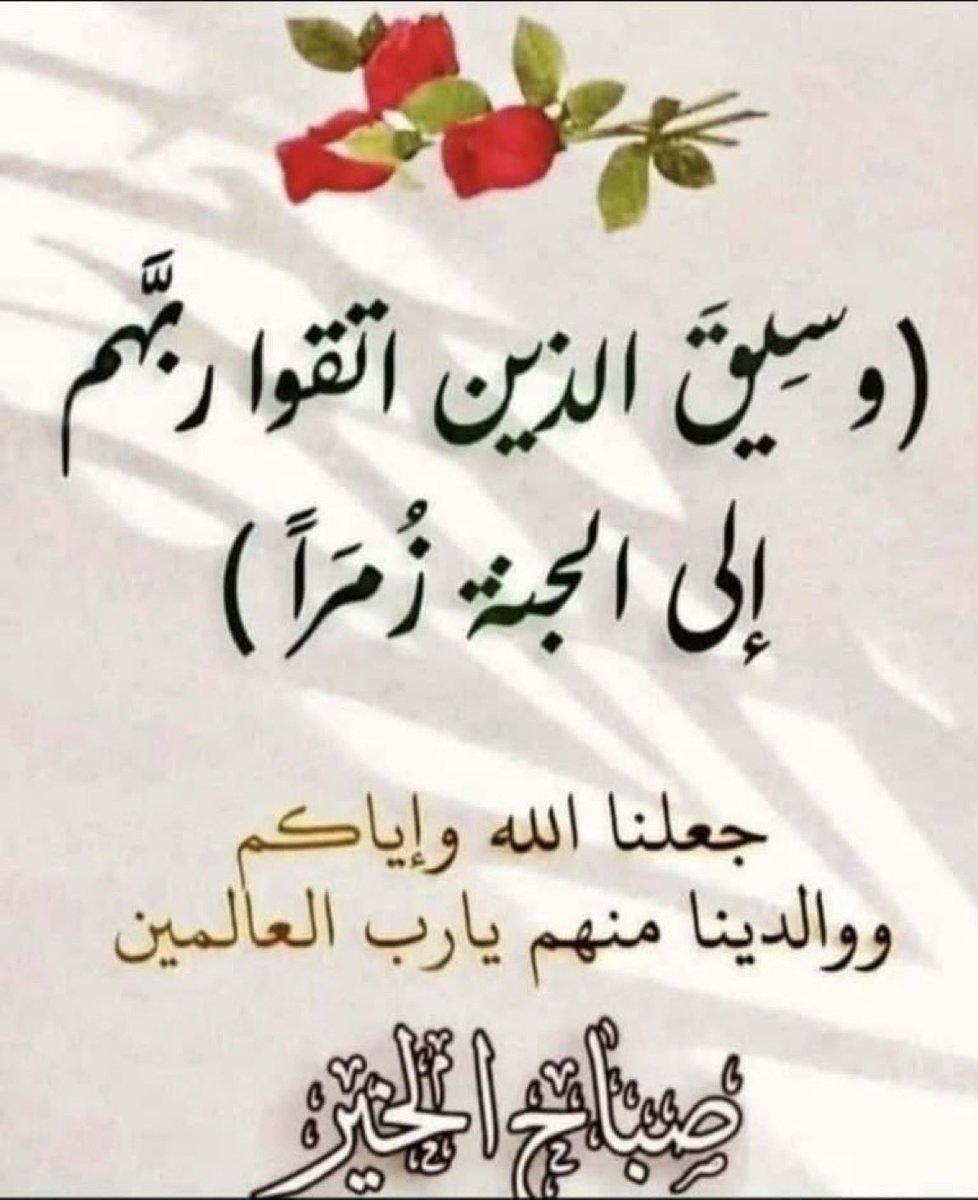 (وسِيقَ الذين اتقوا ربَّهم
إلى الجنة زُمَراً)
جعلنا الله وإياكم
ووالدينا منهم يارب العالمين
صباح الخير